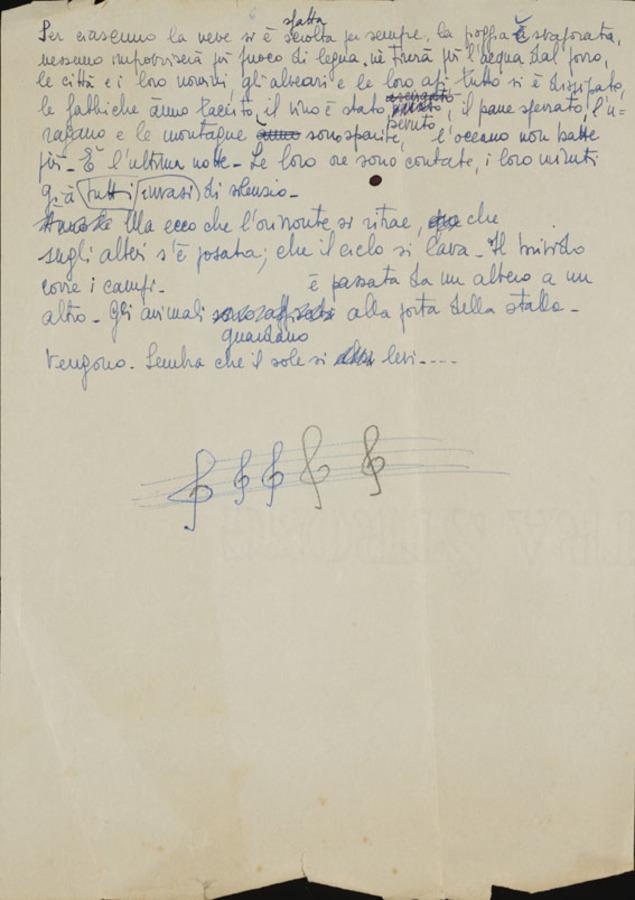 sfatta
Per ciascuno la neve si è sciolta per sempre, la pioggia è svaporata,
nessuno improvviserà più fuoco di legna, nè tirerà più l'acqua dal pozzo,
le città e i loro uomini, gli alveari e le loro api tutto si è dissipato,
le fabbriche ànno taciuto, il vino è stato asciugato, il pane sferrato, l'u-
bevuto
ragano e le montagne ànno sono sparite, l'oceano non batte
più - È l'ultima notte - Le loro ore sono contate, i loro minuti
già tutti invasi di silenzio -
Ma ecco che l'orizzonte si ritrae, che
sugli alberi s'è posata; che il cielo si lava - Il brivido
corre i campi - è passata da un albero a un
altro - Gli animali alla porta della stalla -
guardano
Vengono - Sembra che il sole si levi ----